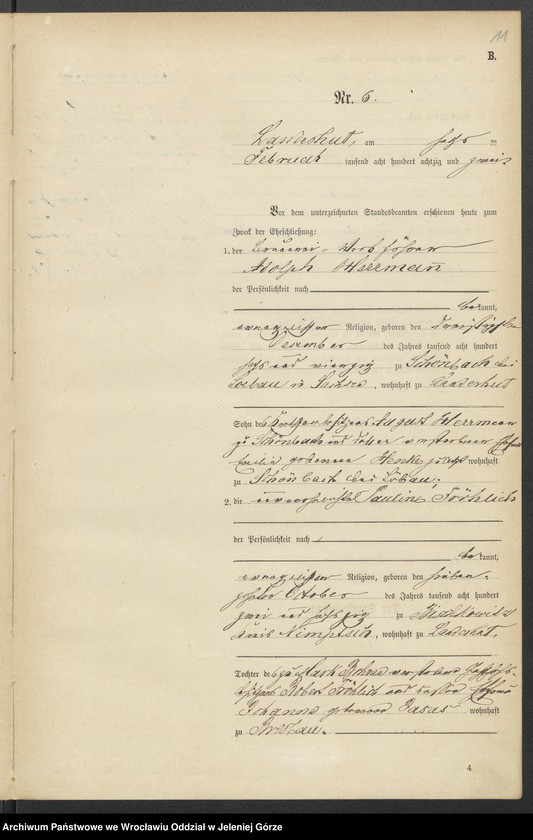 11
B.
Nr. 6.
Landeshut, am sechs ten
Februar tausend acht hundert achtzig und zwei
Vor dem unterzeichneten Standesbeamten erschienen heute zum
Zweck der Eheschließung:
1. der Brauerei-Werkführer
Adolph Herrmann
der Persönlichkeit nach
be kannt,
evangelischer Religion, geboren den
Dezember des Jahres tausend acht hundert
sechs und vierzig zu Schönbach bei
Loebau in Sachsen, wohnhaft zu Landeshut
Sohn des August Herrmann
zu Schönbach und dessen verstorbenen Ehefrau
geborenen wohnhaft
zu Schönbach bei Löbau;
2. die unverehelichte Pauline Fröhlich
der Persönlichkeit nach
be kannt,
evangelischer Religion, geboren den sieben-
zehnten October des Jahres tausend acht hundert
zwei und sechszig zu
Kreis Nimptsch, wohnhaft zu Landeshut,
Tochter des verstorbenen
Robert Fröhlich und dessen Ehefrau
Johanna geborenen wohnhaft
zu Breslau.
4
Archiwum Państwowe we Wrocławiu Oddział w Jeleniej Górze